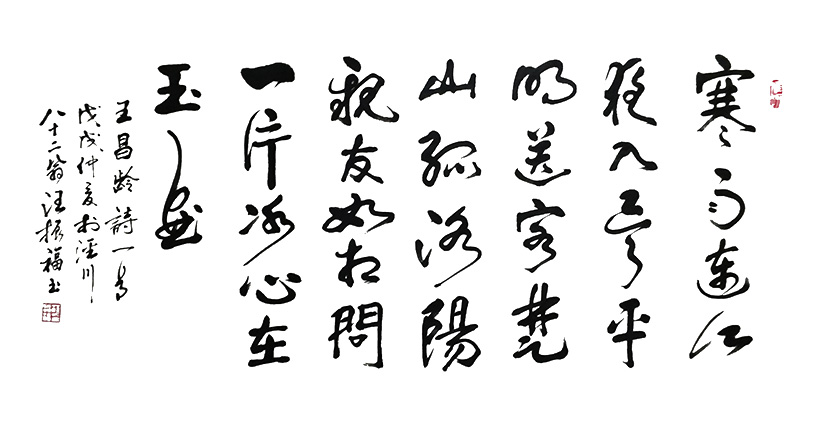 寒雨連江
夜入吳平
明送客楚
山孤洛陽
親友如相問
一片冰心在
玉壺
王昌齡詩一首
戊戌仲夏於涇川
八十二翁汪振福書